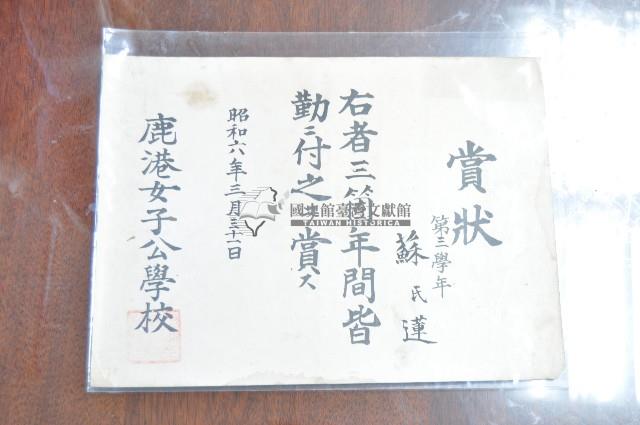 賞狀
第三學年
蘇氏蓮
右者三箇年間皆
勤ニ付之ヲ賞ス
昭和六年三月三十一日
鹿港女子公學校
國史館臺灣文獻館
TAIWAN HISTORICA